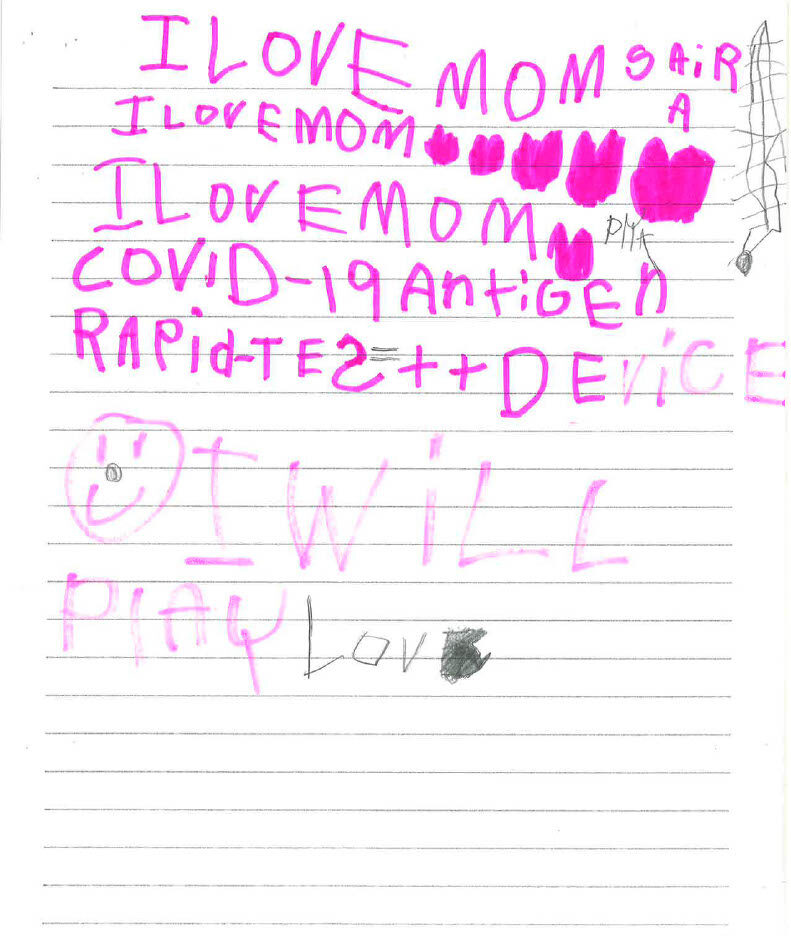 I LOVE MOM SAiR
A
I LOVE MOM
I LOVE MOM
COViD-19 AntiGEn
RAPid-TES=++DEViCE
I WiLL
PlAY LOVE